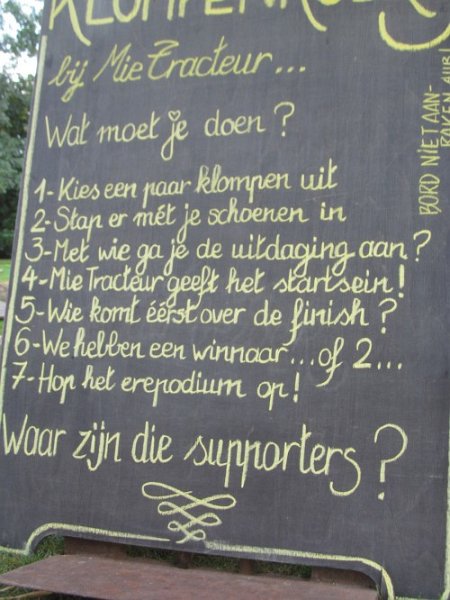 bij Mie Tracteur...
Wat moet je doen?
1-Kies een paar klompen uit
2-Stap er mét je schoenen in
3-Met wie ga je de uitdaging aan?
4-Mie Tracteur geeft het startsein!
5-Wie komt éérst over de finish?
6-We hebben een winnaar...of 2...
7-Hop het erepodium op!
Waar zijn die supporters?
BORD NIET AAN-
RAKEN AUB!